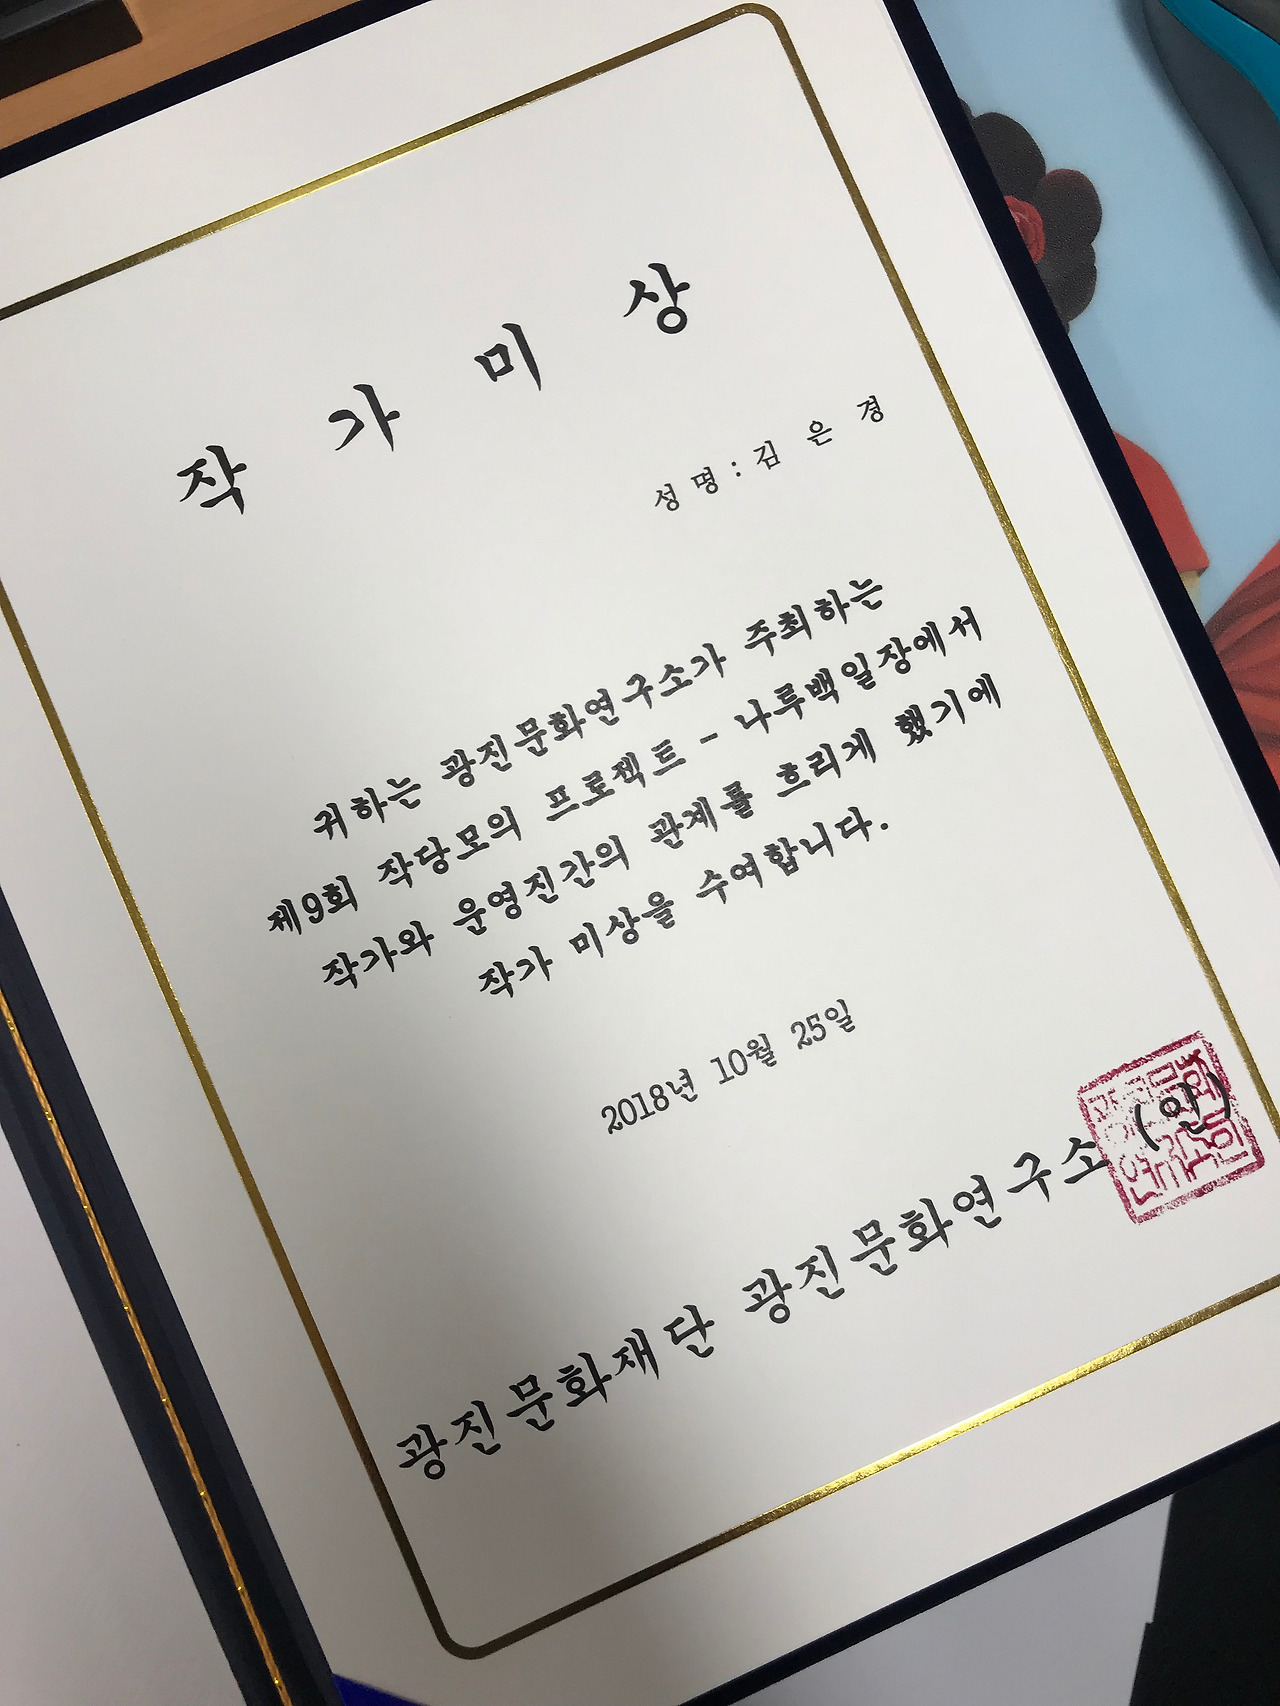 작가미상
성명 : 김은경
귀하는 광진문화연구소가 주최하는
제9회 작당모의 프로젝트 - 나루백일장에서
작가와 운영진간의 관계를 흐리게 했기에
작가 미상을 수여합니다.
2018년 10월 25일
광진문화재단 광진문화연구소 (인)